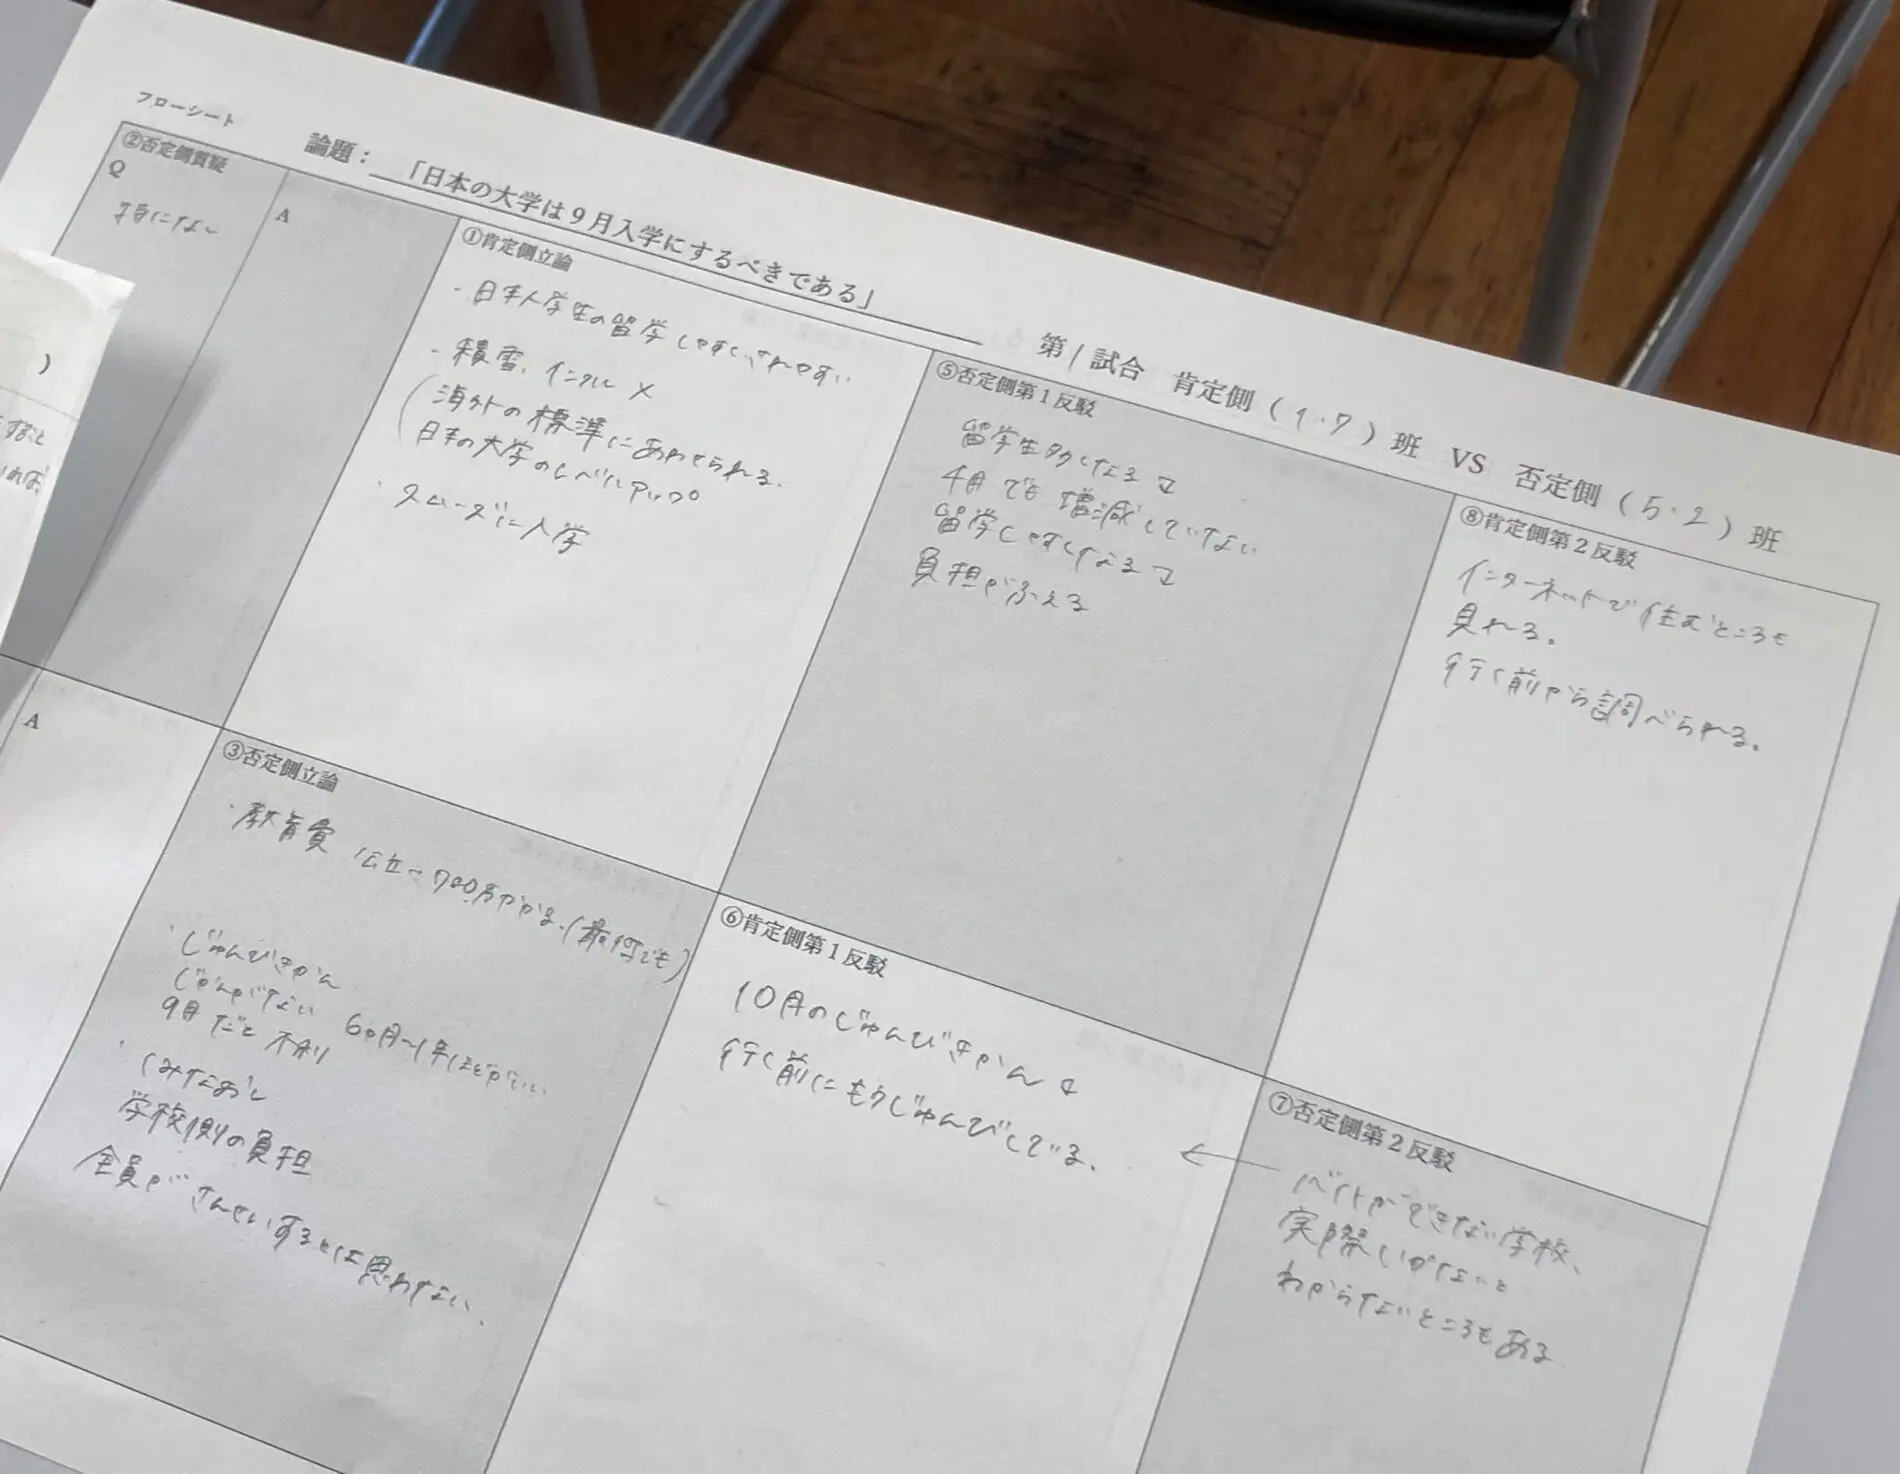 フローシート
論題：「日本の大学は９月入学にするべきである」 第1試合 肯定側（1・7）班 VS 否定側（5・2）班
②否定側質疑
Q
A
特になし
①肯定側立論
・日本人学生の留学しやすい、されやすい
・積雪、インフル ×
海外の標準にあわせられる。
日本の大学のレベルアップ
・スムーズに入学
⑤否定側第１反駁
留学生多くなる
4月でも増減していない
留学しやすくなる
負担がふえる
⑧肯定側第２反駁
インターネットで住むところも
見れる。
行く前から調べられる。
A
③否定側立論
・教育費 公立 700万かかる。(最低でも)
・じゅんびきかん
じかんがない 6ヶ月〜1年ほどがいい
9月だと不利
・くみなおし
学校側の負担
全員がさんせいするとは思わない、
⑥肯定側第１反駁
10月のじゅんびきかん
行く前にもうじゅんびしてる。
⑦否定側第２反駁
←
バイトができない学校、
実際いかないと
わからないところもある
)
すること
れば、